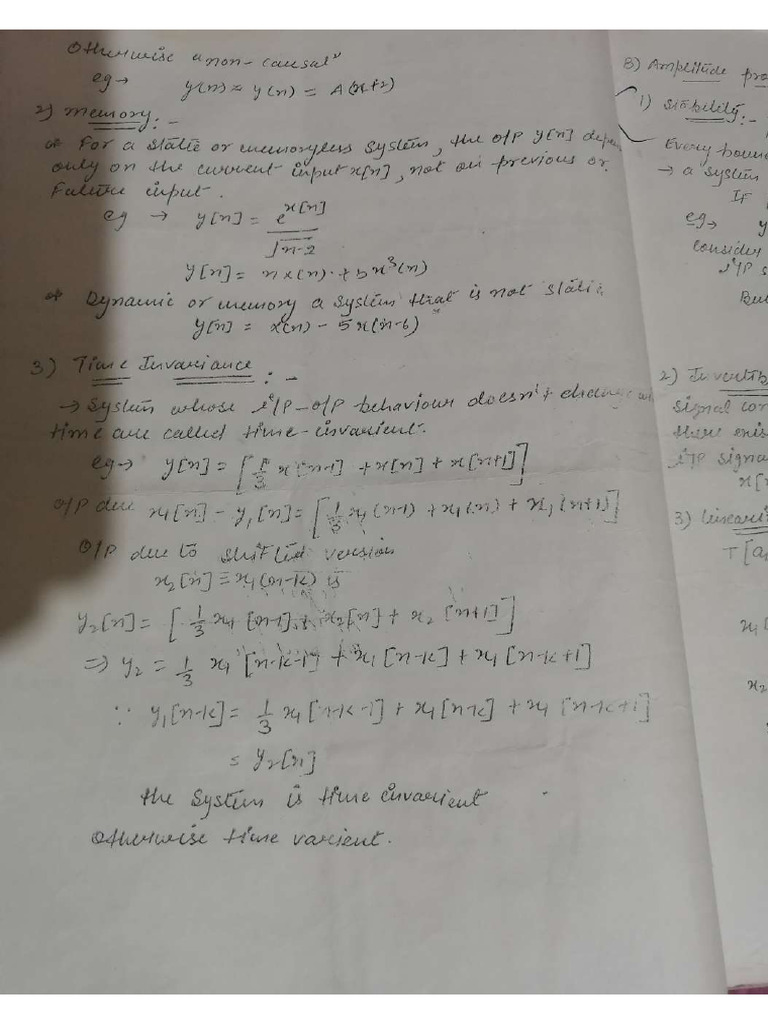 Otherwise a non-causal
eg → y(n) = A(x+2)
2) Memory :-
* For a static or memoryless system, the o/p y[n] depen
only on the current input x[n], not on previous or
Future input.
eg → y[n] = e^x[n] / √n-2
y[n] = n x(n) + 5x³(n)
* Dynamic or memory a system that is not static
y[n] = x(n) - 5x(n-6)
3) Time Invariance :-
→ System whose i/p-o/p behaviour doesn't change
time are called time-invarient.
eg → y[n] = [1/3 x[n-1] + x[n] + x[n+1]]
o/p due x1[n] - y1[n] = [1/3 x1(n-1) + x1(n) + x1[n+1]]
O/P due to shifted version
x2[n] = x1(n-k) is
y2[n] = [1/3 x1[n-1] + x2[n] + x2[n+1]]
⇒ y2 = 1/3 x1[n-k-1] + x1[n-k] + x1[n-k+1]
∵ y1[n-k] = 1/3 x1[n-k-1] + x1[n-k] + x1[n-k+1]
= y2[n]
the system is time invarient
Otherwise time varient.
B) Amplitude pro
1) Stability :-
Every boun
→ a system
If
eg → y
consider
i/p s
But
2) Invertib
signal cor
there exis
i/p signa
x[
3) linearit
T[a
x1[
x2